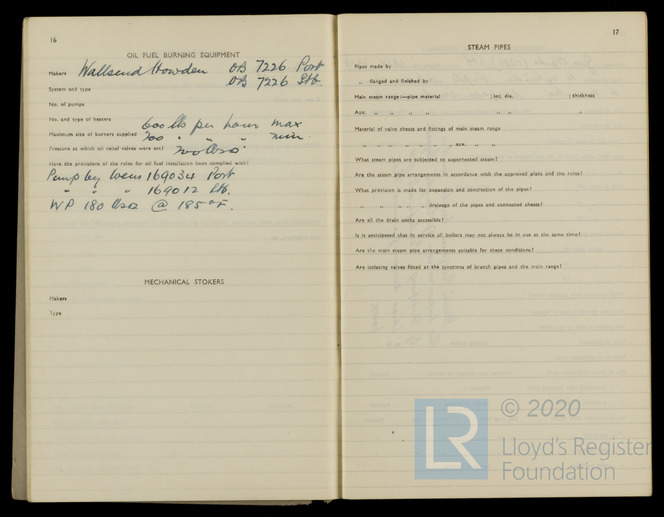 16
OIL FUEL BURNING EQUIPMENT
Makers Wallsend Howden OB 7226 Port
OB 7226 Stb.
System and type
No. of pumps
No. and type of heaters
600 lbs per hour max
Maximum size of burners supplied 200 " " " min.
Pressure at which oil relief valves were set? 200 lbs
Have the provisions of the rules for oil fuel installation been complied with?
Pump by Weirs 169034 Port
" " " 169012 Stb.
WP 180 lbs @ 185°F.
MECHANICAL STOKERS
Makers
Type
17
STEAM PIPES
Plans made by
" flanged and finished by
Main steam range:—pipe material ; int. dia. ; thickness
Aux. " " " " " " "
Material of valve chests and fittings of main steam range
" " " " " " aux. " "
What steam pipes are subjected to superheated steam?
Are the steam pipe arrangements in accordance with the approved plans and the rules?
What provision is made for expansion and contraction of the pipes?
" " " " " drainage of the pipes and connected chests?
Are all the drain cocks accessible?
Is it anticipated that in service all boilers may not always be in use at the same time?
Are the main steam pipe arrangements suitable for these conditions?
Are isolating valves fitted at the junctions of branch pipes and the main range?
LR © 2020
Lloyd's Register
Foundation